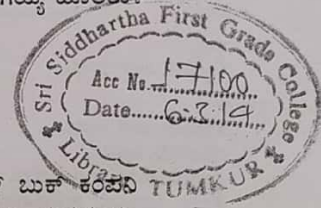 Sri Siddhartha First Grade College
Acc No. 17100
Date......6.3.14
Library
TUMKUR
ಬುಕ್ ಕಂಪನಿ